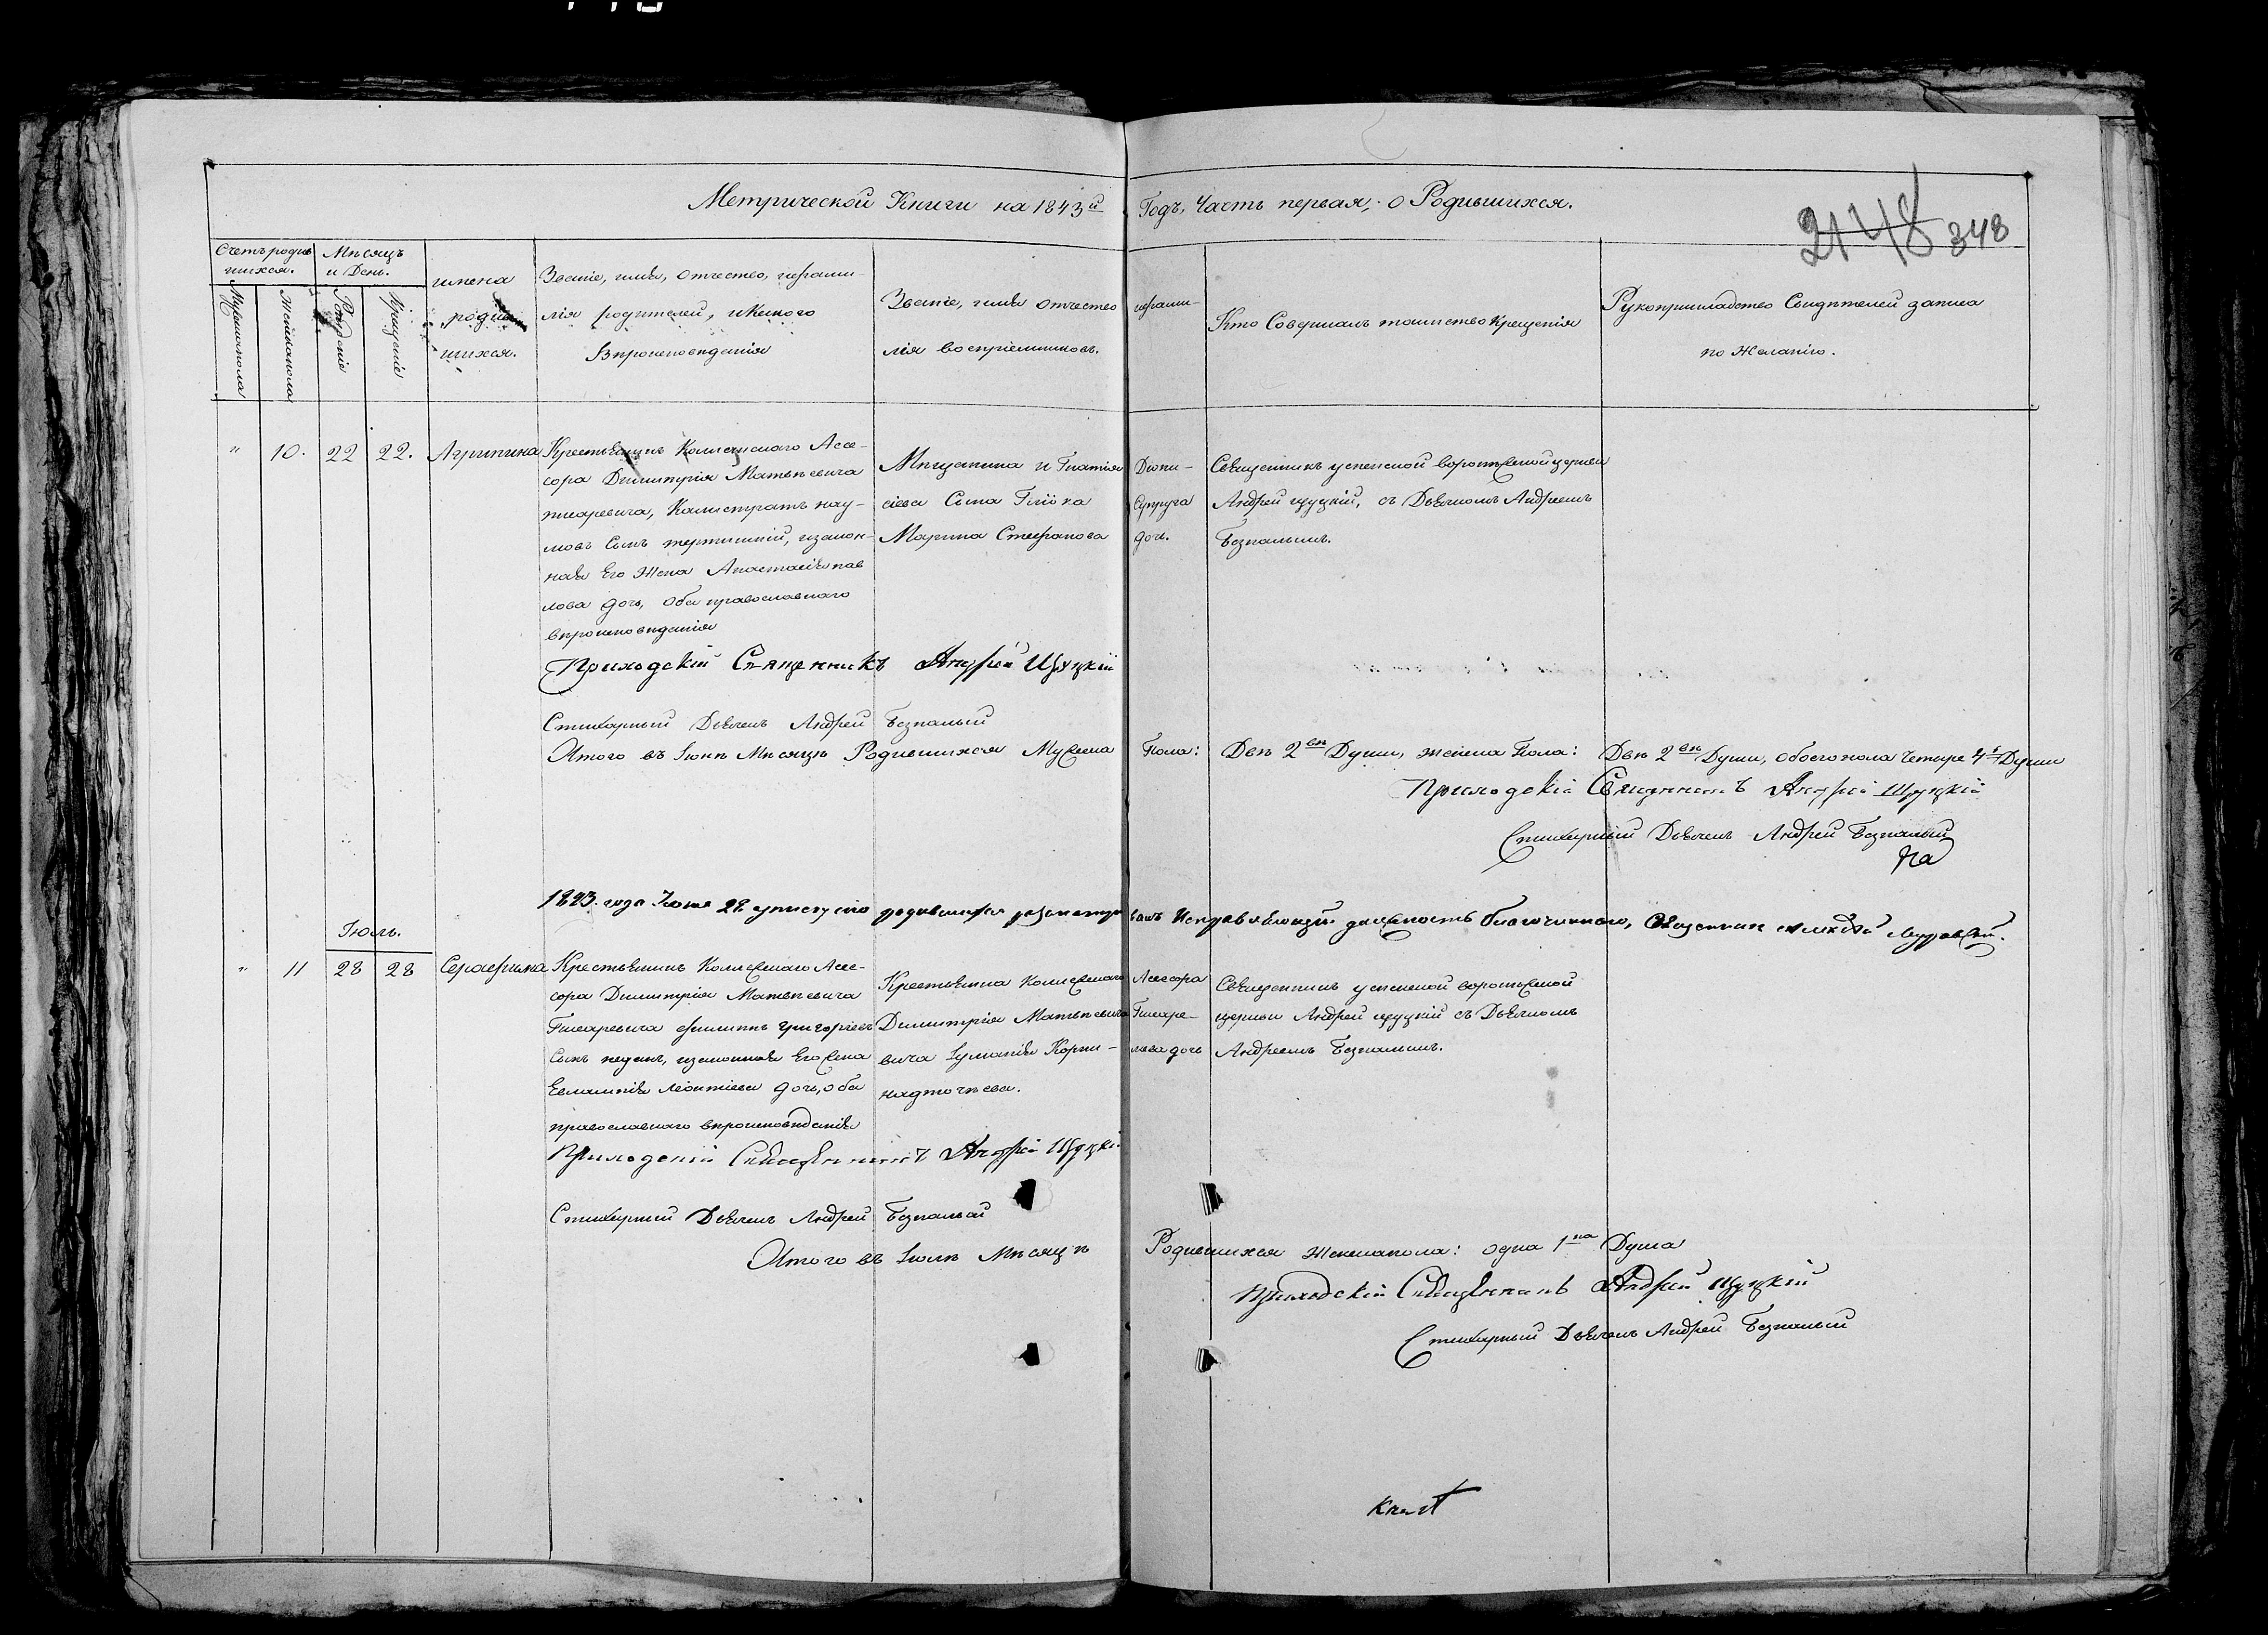 Метрической Книги на 1843й Годъ, Часть первая, о Родившихся.
2148 348
Счетъ родив
шихся.
Мужескапола
Женскапола
Мѣсяцъ
и День.
Рожденіе
Крещеніе
имена
родив
шихся.
Званіе, имя, отчество, ифами-
лія родителей, икакого
Вѣроисповѣданія
Званіе, имя отчество ифами-
лія воспріемниковъ.
Кто Совершалъ таинство крещенія
Рукоприкладство Свидѣтелей записа
по Желанію.
" 10. 22 22. Агрипина
Крестьянинъ Колежскаго Ассе-
сора Димитрія Матвѣевича
писаревича, Калистратъ нау-
мовъ Сынъ , изакон-
ная Его Жена Анастасія пав
лова дочь, Оба православнаго
вѣроисповѣданія
Мѣщанина Игнатія Діони-
сіева Сына Супруга
Марина Стефанова дочь.
Священникъ успенской воротьской церкви
Андрей щуцкій, съ Дьячкомъ Андреемъ
Безпалымъ.
Приходскій Священникъ Андрей Щуцкій
Стихарный Дьячекъ Андрей Безпалый
Итого въ Іюнѣ Мѣсяцѣ Родившихся Мужеска Пола: Двѣ 2вѣ Души, женска Пола: Двѣ 2вѣ Души, обоего пола Четыре 4е Души
Приходскій Священникъ Андрей Щуцкій
Стихарный Дьячекъ Андрей Безпалый
1843 года Іюня 28 родившихся Исправляющій должность благочиннаго, Священникъ
Іюль.
" 11 28 28 Серафима
Крестьянинъ Колежскаго Ассе-
сора Димитрія Матвѣевича
Писаревича филипъ григорьевъ
Сынъ , изаконная Его жена
Евлампія Леонтіева дочь, оба
православнаго вѣроисповѣданія
Крестьянина Колежскаго Ассесора
Димитрія Матвѣевича Писаре-
вича Корни- лова дочь
надточѣева.
Священникъ успенской воротьской
церкви Андрей щуцкій съ Дьячкомъ
Андреемъ Безпалымъ.
Приходскій Священникъ Андрей Щуцкій
Стихарный Дьячекъ Андрей Безпалый
Итого въ Іюлѣ Мѣсяцѣ Родившихся Женскапола: одна 1на Душа
Приходскій Священникъ Андрей Щуцкій
Стихарный Дьячекъ Андрей Безпалый